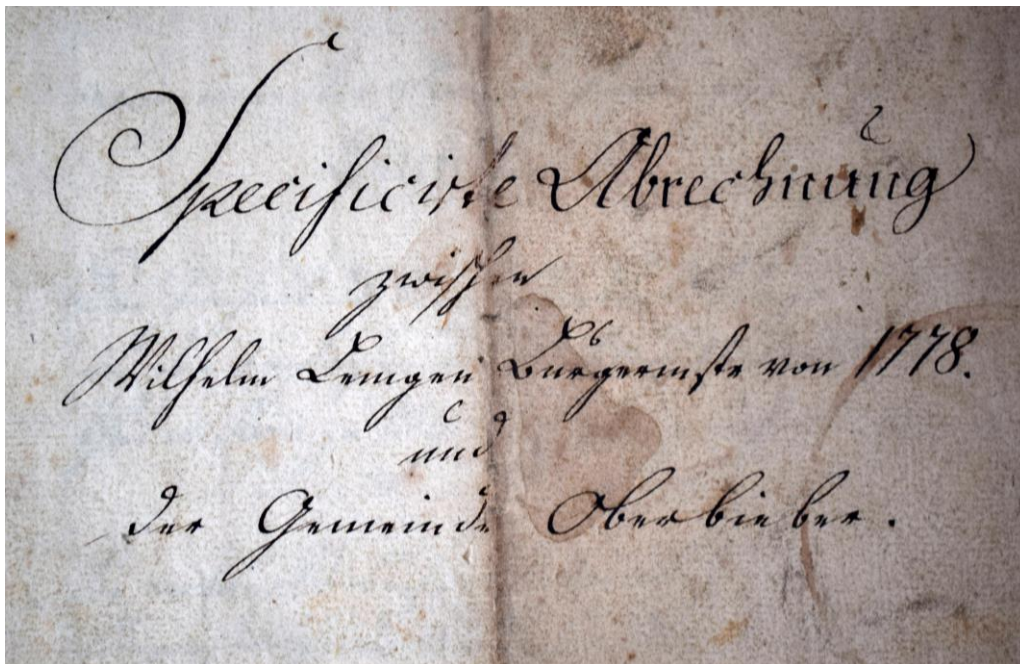 Specificirte Abrechnung
zwischen
Wilhelm Lemgen Burgermstr von 1778.
und
der Gemeinde Oberbieber.